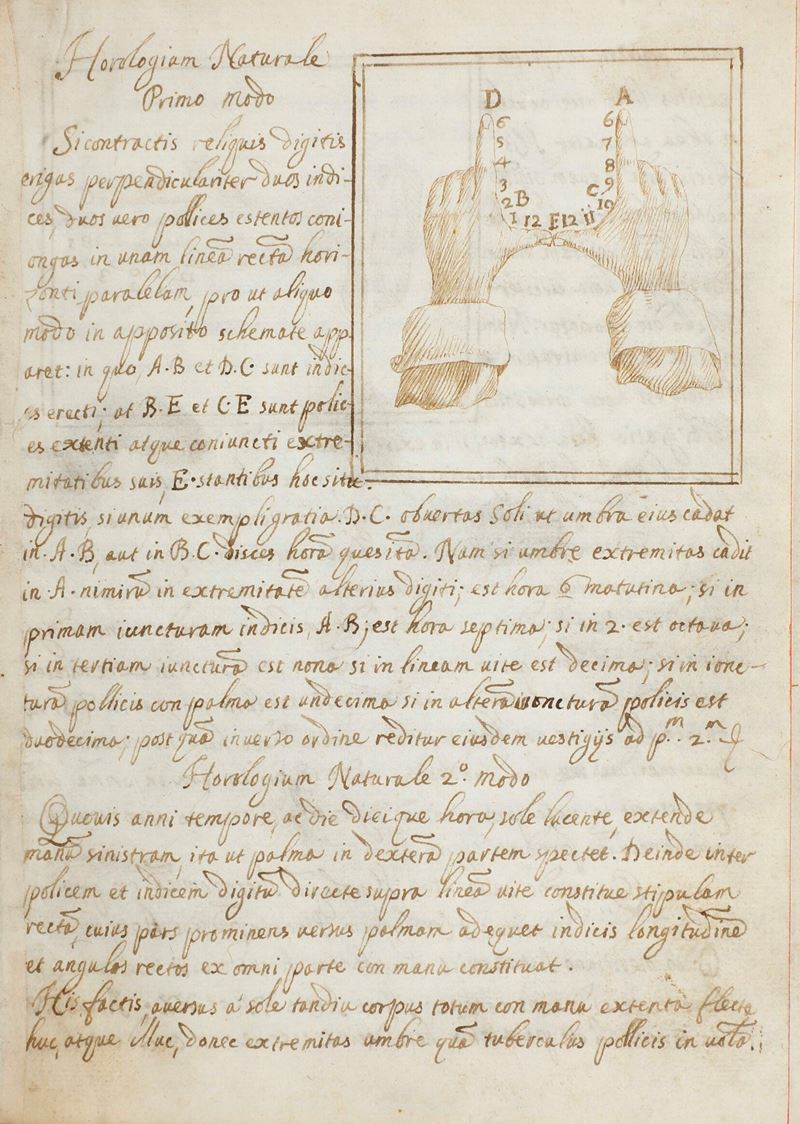 Horologium Naturale
Primo modo
Si contractis reliquis digitis
erigas perpendiculariter duos indi-
ces, duos vero pollices estentos coni-
ongas in unam lineā rectā hori-
zonti paralelam, pro ut aliquo
modo in apposito schemate app
aret: in quo, A·B et D.C· sunt indic-
es erecti; at B.E et C E sunt polic-
es extenti atque coniuncti extre-
mitatibus suis, E·stantibus hoc situ
digitis, si unum exempli gratia. D.C· obvertas Soli ut umbra eius cadat
in·A·B, aut in B.C· disces horā quesitā. Nam si umbre extremitas cadit
in A· nimirū in extremitatē alterius digiti; est hora 6 matutina; si in
primam iuncturam indicis, A·B; est hora septima; si in 2· est octava;
si in tertiam iuncturā est nona si in lineam vite est decima; si in ionc-
turā pollicis con palma est undecima si in alterā ioncturā policis est
duodecima; post quā inverso ordine reditur eiusdem vestigijs ad pᵐ. 2.ᵐ
Horologium Naturale 2º. modo
Quovis anni tempore, ac die dieique hora, sole lucente, extende
manū sinistram, ita ut palma in dexterā partem spectet. Deinde inter
policem et indicem digitū directe supra lineā vite constitue stipulam
rectā, cuius pars prominens versus palmam adequet indicis longitudinē
et angulos rectos ex omni parte con manu constituat.
His factis, aversus á sole tandiu corpus totum con manu extenta flecte
huc, atque illuc, donec extremitas umbre quā tuberculus pollicis in
D
A
6
5
4
3
2
B
1
12
E
12
11
10
C
9
8
7
6